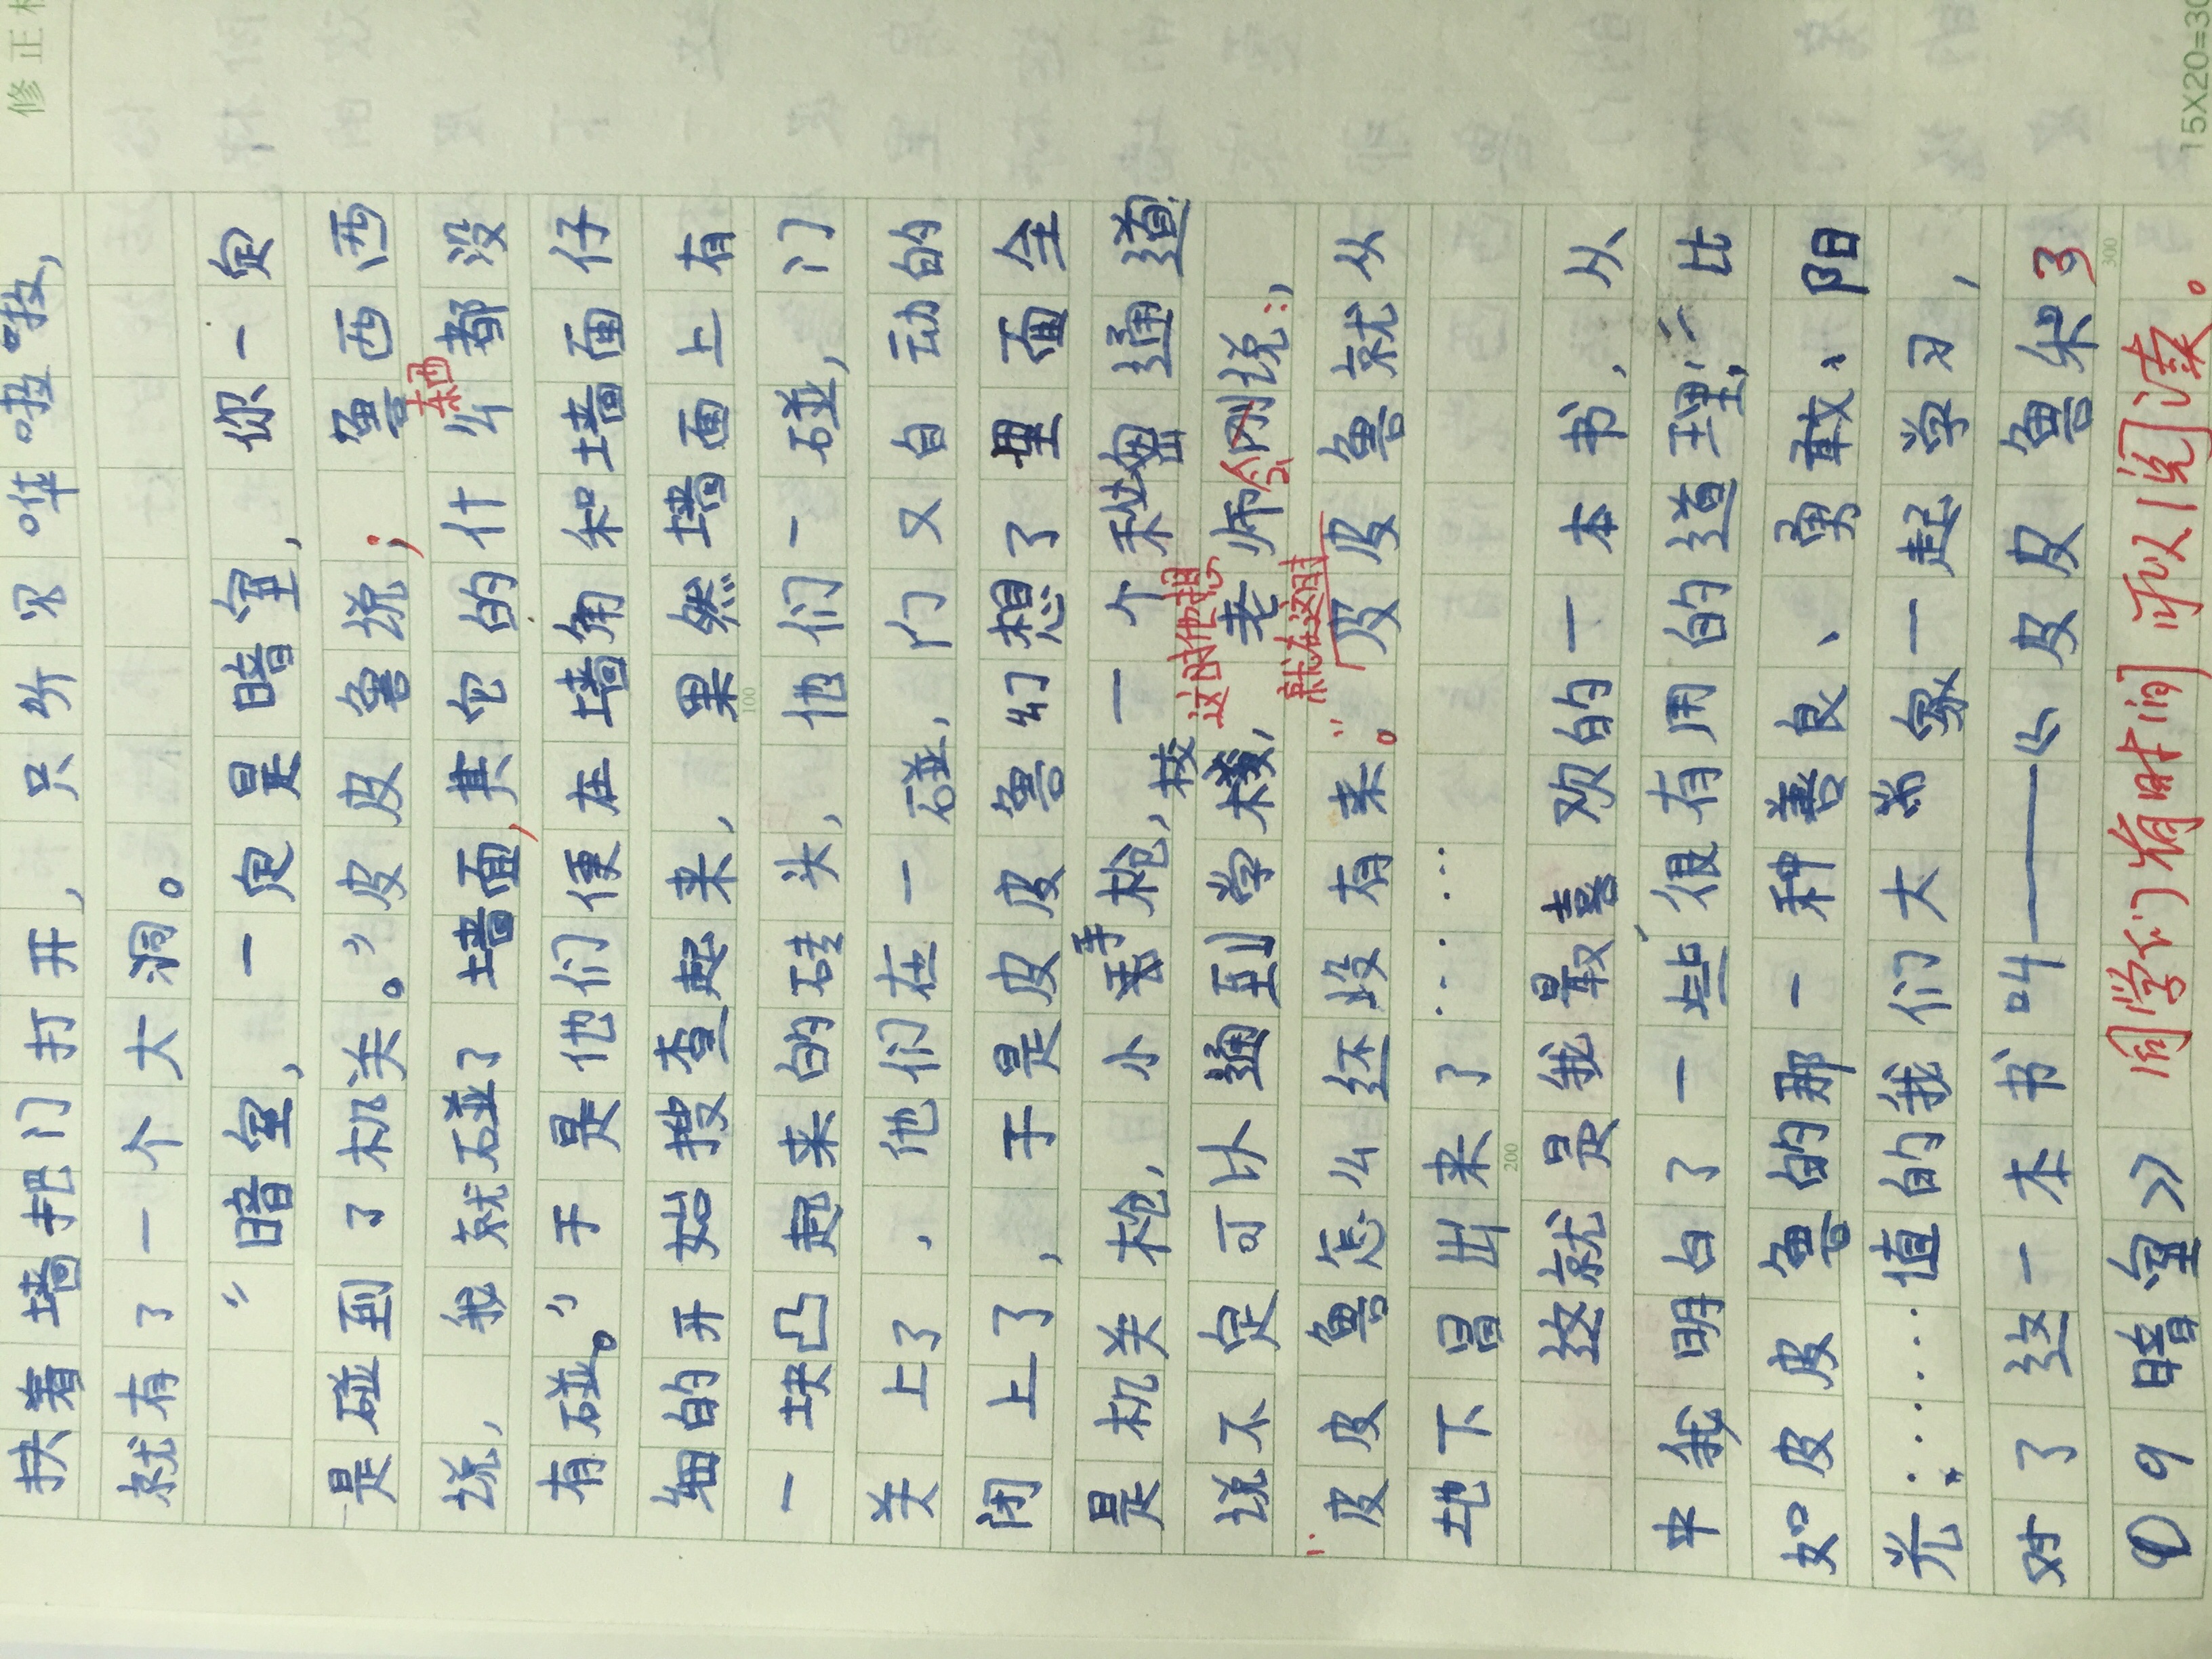 修正
扶着墙把门打开，只听见哗啦啦，
就有了一个大洞。
“暗室，一定是暗室，你一定
是碰到了机关。”皮皮鲁说；鲁西西
说，我就碰了墙面，其它的什么东西都没
有碰。”于是他们便在墙角和墙面仔
细的开始搜查起来，果然墙面上有
一块凸起来的砖头，他们一碰，门
关上了，他们在一碰，门又自动的
闭上了，于是皮皮鲁幻想了里面全
是机关枪，小手枪，一个秘密通道
这时他想
说不定可以通到学校，老师会说：，
就在这时
“皮皮鲁怎么还没有来。”皮皮鲁就从
地下冒出来了……
这就是我最喜欢的一本书，从
中我明白了一些很有用的道理，比
如皮皮鲁的那一种善良、勇敢、阳
光……值的我们大家一起学习，
对了这一本书叫——《皮皮鲁和3
09暗室》同学们有时间可以阅读。
100
200
300
15X20=30